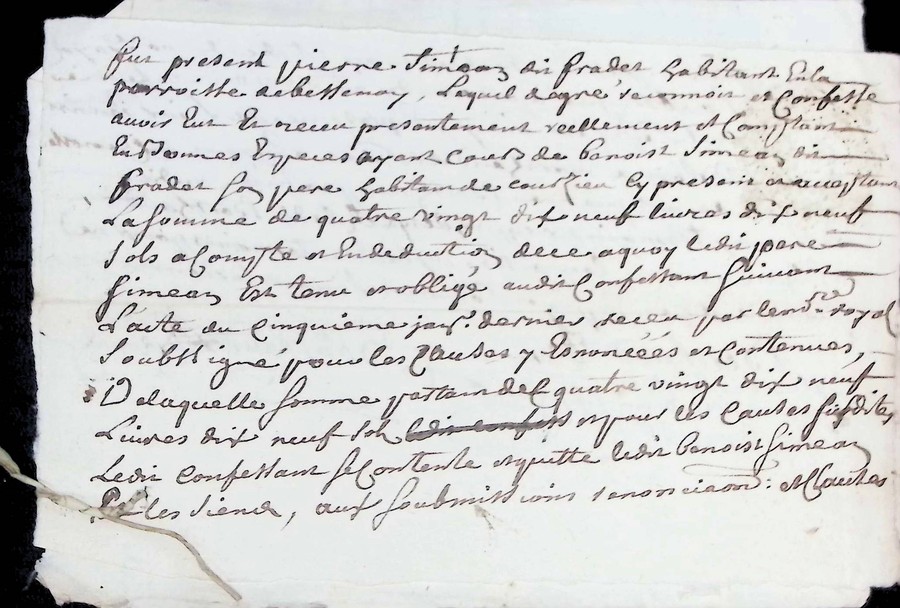 Fut present pierre Simean dit fradet habitant En la
parroisse de bessenay, Lequel de gré reconnoit et Confesse
avoir Eut Et receu presentement reellement et Comptant
En bonnes Especes ayant Cours de benoist Simean dit
fradet son pere habitant de courzieu Cy present et acceptant
La somme de quatre vingt dix neuf livres dix neuf
sols a Compte et En deduction de ce a quoy ledit pere
Simean Est tenu et obligé audit Confessant suivant
L'acte du Cinquieme janr. dernier receu par le nore. royal
soubsigné pour les Causes y Enoncéés et Contenues,
De laquelle somme partant de quatre vingt dix neuf
Livres dix neuf sols ledit confess et pour les Causes susdites
Ledit Confessant se Contente et quitte ledit benoist Simean
Et les siens, aux soubmissions renonciaons: et Clauses